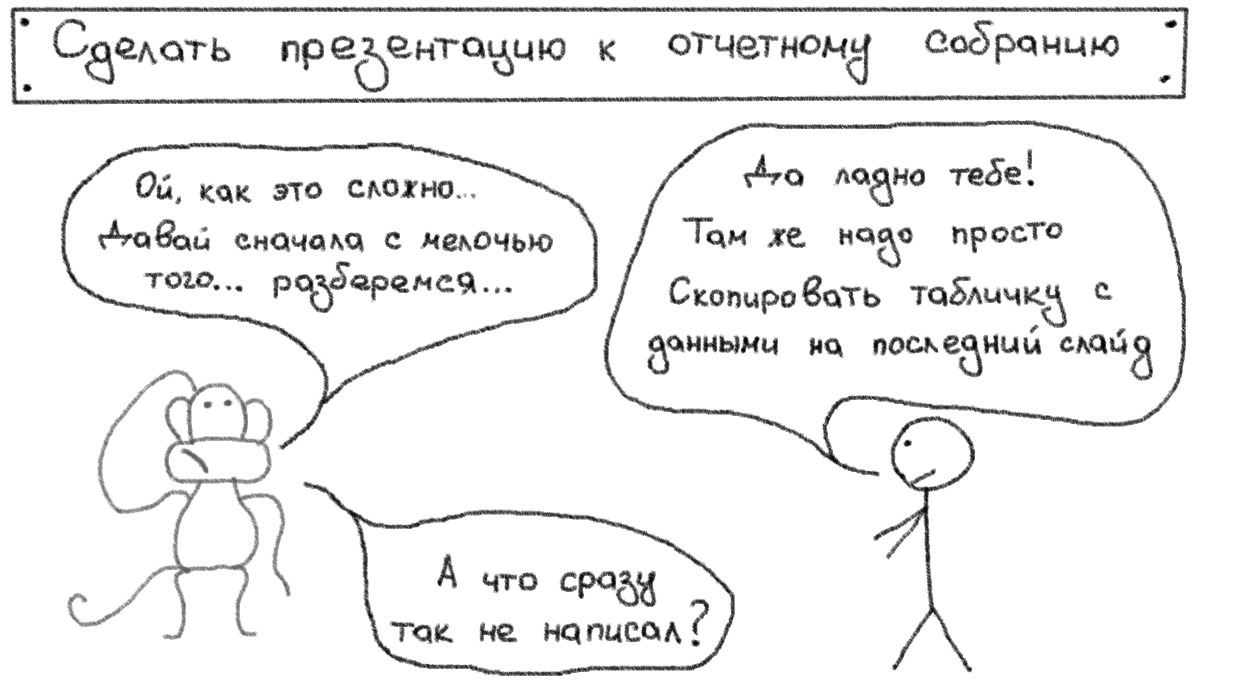 Сделать презентацию к отчетному собранию
Ой, как это сложно...
Давай сначала с мелочью
того... разберемся...
Да ладно тебе!
Там же надо просто
Скопировать табличку с
данными на последний слайд
А что сразу
так не написал?